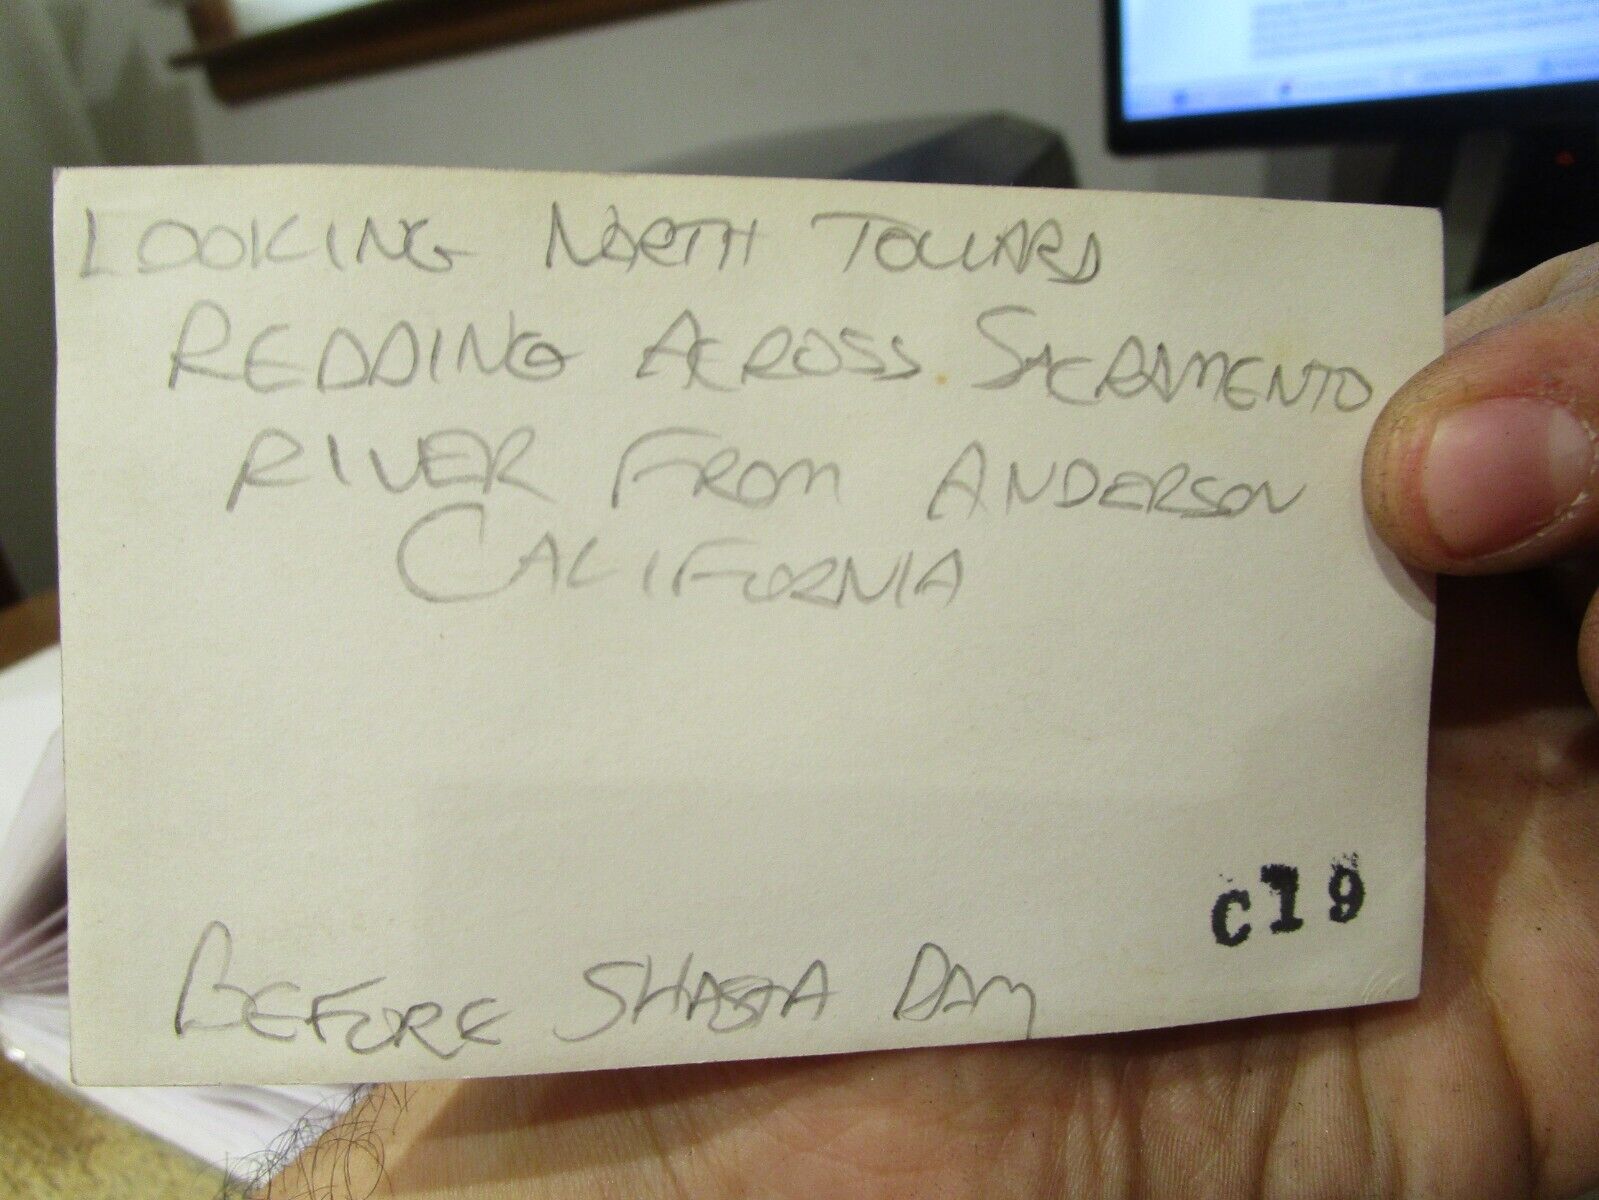 LOOKING NORTH TOWARD
REDDING ACROSS SACRAMENTO
RIVER FROM ANDERSON
CALIFORNIA
C19
BEFORE SHASTA DAM